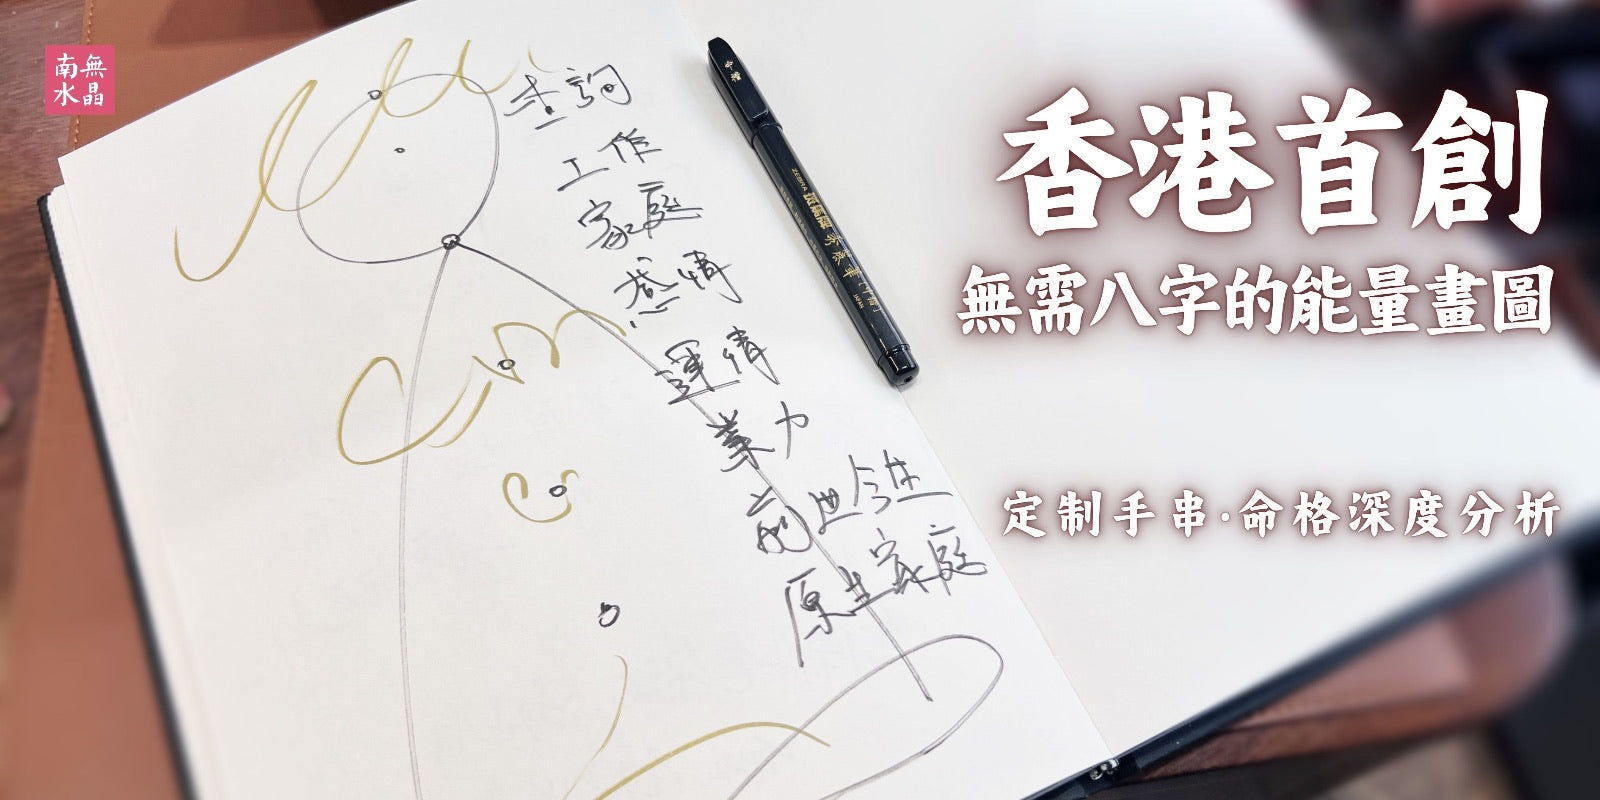 南無
水晶
查詢
工作
家庭
感情
運情
業力
前世今生
原生家庭
中楷
ZEBRA
香港首創
無需八字的能量畫圖
定制手串·命格深度分析